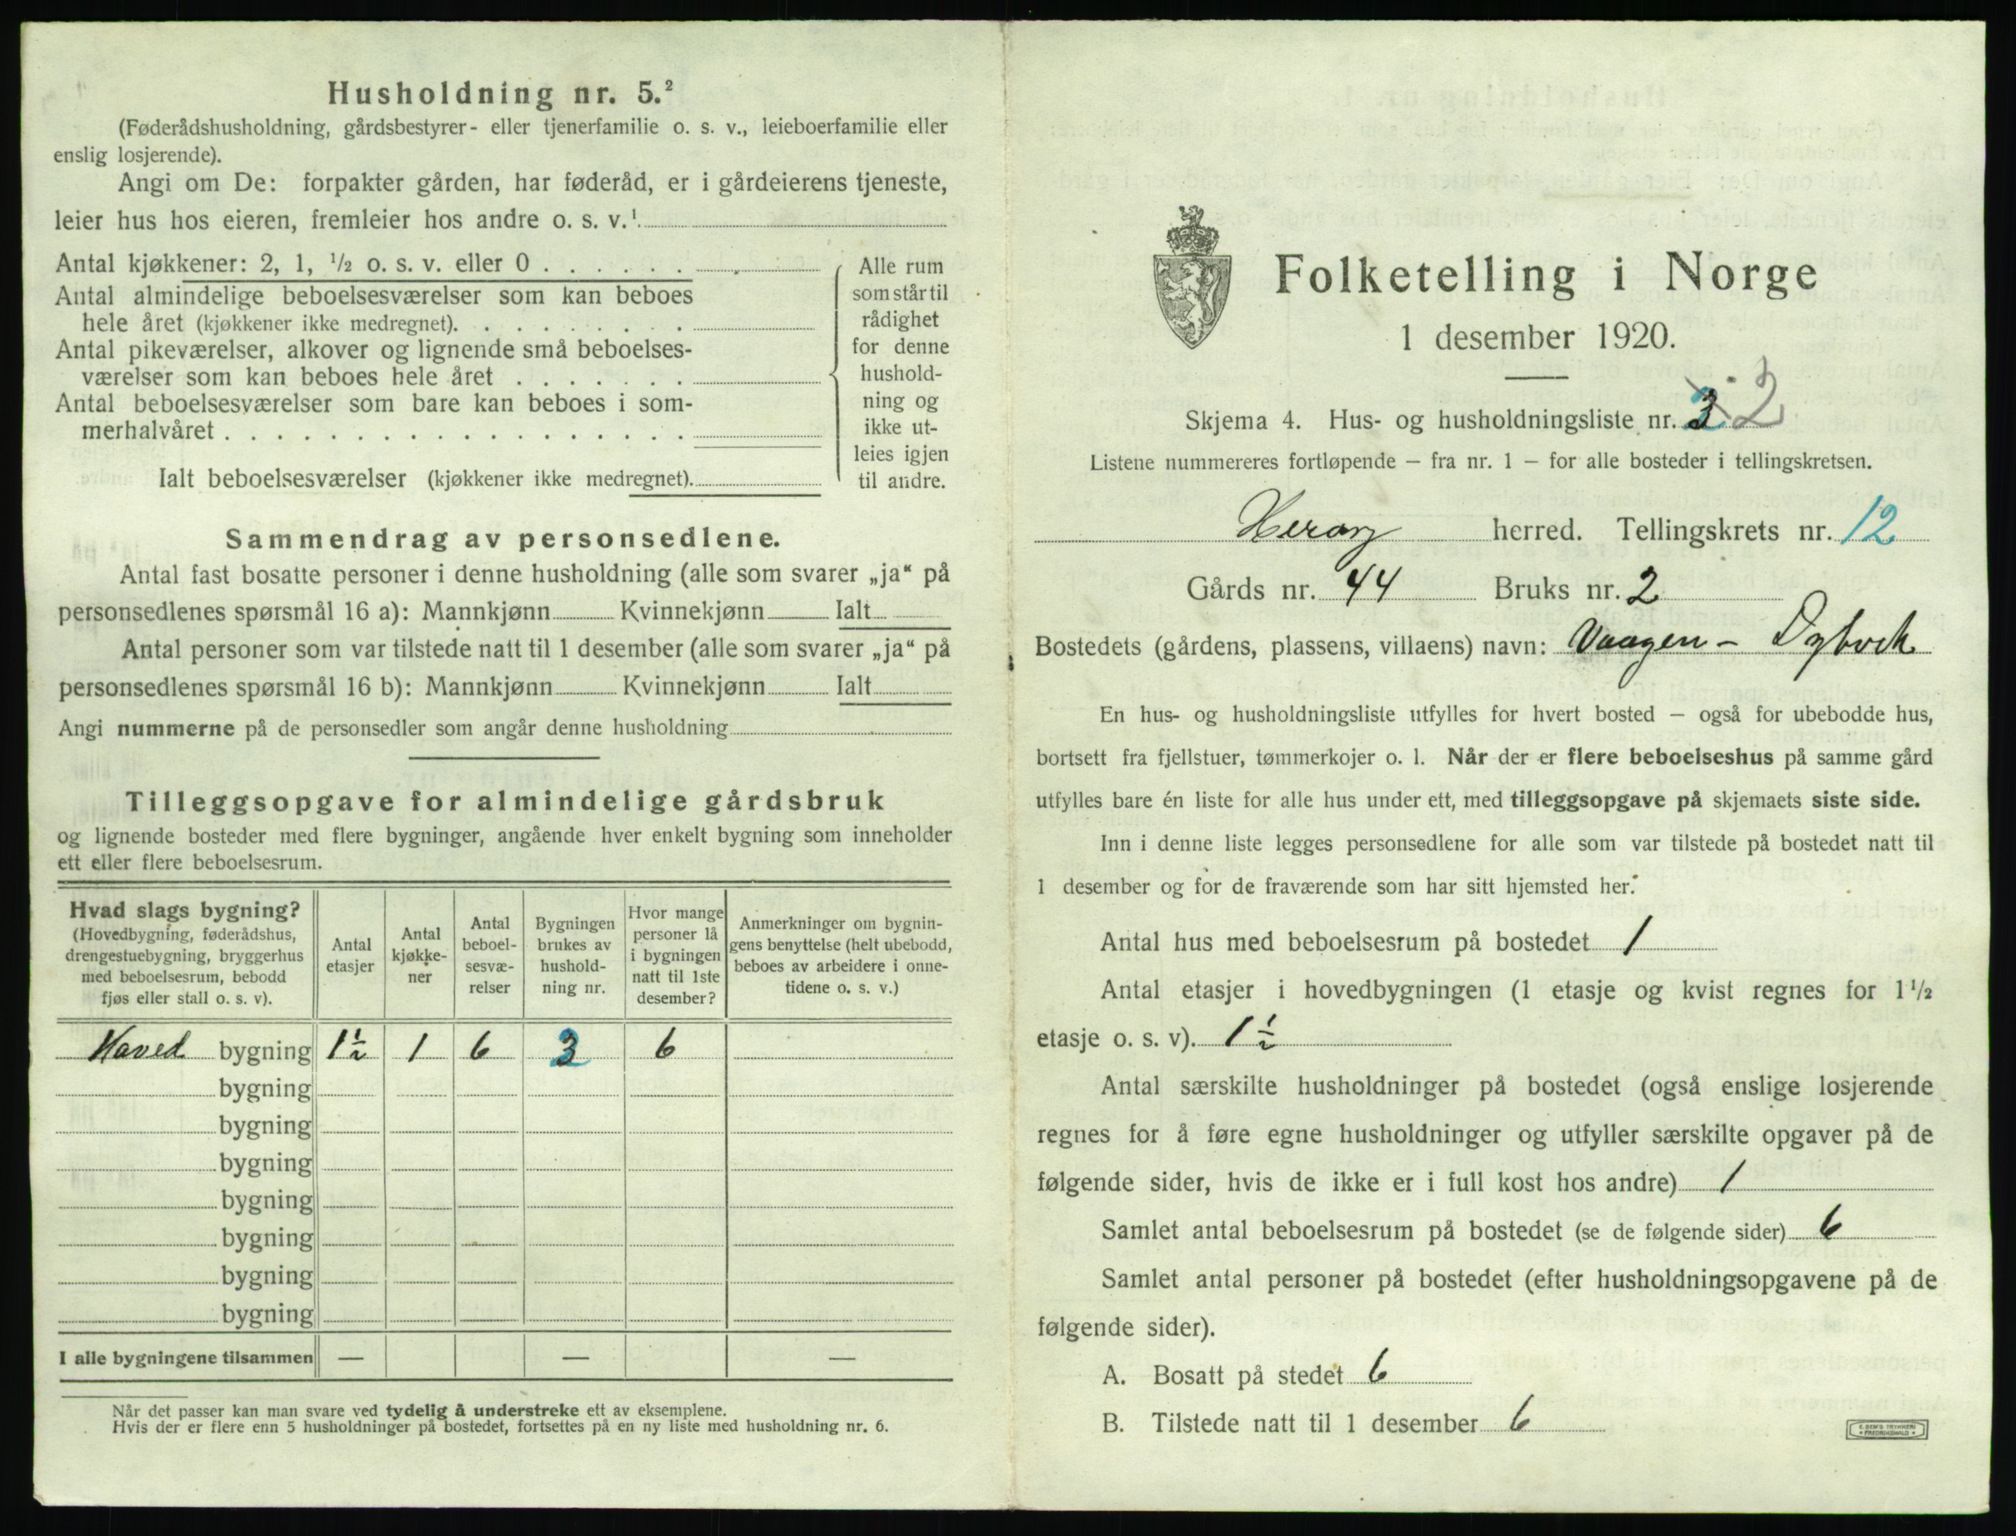 Husholdning nr. 5.²
(Føderådshusholdning, gårdsbestyrer- eller tjenerfamilie o. s. v., leieboerfamilie eller
enslig losjerende).
Angi om De: forpakter gården, har føderåd, er i gårdeierens tjeneste,
leier hus hos eieren, fremleier hos andre o. s. v.¹
Antal kjøkkener: 2, 1, ½ o. s. v. eller 0 . . . . . .
Antal almindelige beboelsesværelser som kan beboes
hele året (kjøkkener ikke medregnet). . . . . . . . .
Antal pikeværelser, alkover og lignende små beboelses-
værelser som kan beboes hele året . . . . . . .
Antal beboelsesværelser som bare kan beboes i som-
merhalvåret . . . . . . . . . . . . . . . . . .
Ialt beboelsesværelser (kjøkkener ikke medregnet).
Alle rum
som står til
rådighet
for denne
hushold-
ning og
ikke ut-
leies igjen
til andre.
Sammendrag av personsedlene.
Antal fast bosatte personer i denne husholdning (alle som svarer „ja“ på
personsedlenes spørsmål 16 a): Mannkjønn Kvinnekjønn Ialt
Antal personer som var tilstede natt til 1 desember (alle som svarer „ja“ på
personsedlenes spørsmål 16 b): Mannkjønn Kvinnekjønn Ialt
Angi nummerne på de personsedler som angår denne husholdning
Tilleggsopgave for almindelige gårdsbruk
og lignende bosteder med flere bygninger, angående hver enkelt bygning som inneholder
ett eller flere beboelsesrum.
Hvad slags bygning?
(Hovedbygning, føderådshus,
drengestuebygning, bryggerhus
med beboelsesrum, bebodd
fjøs eller stall o. s. v).
Antal
etasjer
Antal
kjøkke-
ner
Antal
beboel-
sesvæ-
relser
Bygningen
brukes av
hushold-
ning nr.
Hvor mange
personer lå
i bygningen
natt til 1ste
desember?
Anmerkninger om bygnin-
gens benyttelse (helt ubebodd,
beboes av arbeidere i onne-
tidene o. s. v.)
Hoved bygning 1½ 1 6 3 6
bygning
bygning
bygning
bygning
bygning
bygning
bygning
I alle bygningene tilsammen — — —
Når det passer kan man svare ved tydelig å understreke ett av eksemplene.
Hvis der er flere enn 5 husholdninger på bostedet, fortsettes på en ny liste med husholdning nr. 6.
Folketelling i Norge
1 desember 1920.
Skjema 4. Hus- og husholdningsliste nr. 3 2
Listene nummereres fortløpende – fra nr. 1 – for alle bosteder i tellingskretsen.
Herøy herred. Tellingskrets nr. 12
Gårds nr. 44 Bruks nr. 2
Bostedets (gårdens, plassens, villaens) navn: Vaagen – Dybvik
En hus- og husholdningsliste utfylles for hvert bosted – også for ubebodde hus,
bortsett fra fjellstuer, tømmerkojer o. l. Når der er flere beboelseshus på samme gård
utfylles bare én liste for alle hus under ett, med tilleggsopgave på skjemaets siste side.
Inn i denne liste legges personsedlene for alle som var tilstede på bostedet natt til
1 desember og for de fraværende som har sitt hjemsted her.
Antal hus med beboelsesrum på bostedet 1
Antal etasjer i hovedbygningen (1 etasje og kvist regnes for 1½
etasje o. s. v). 1½
Antal særskilte husholdninger på bostedet (også enslige losjerende
regnes for å føre egne husholdninger og utfyller særskilte opgaver på de
følgende sider, hvis de ikke er i full kost hos andre) 1
Samlet antal beboelsesrum på bostedet (se de følgende sider) 6
Samlet antal personer på bostedet (efter husholdningsopgavene på de
følgende sider).
A. Bosatt på stedet 6
B. Tilstede natt til 1 desember 6